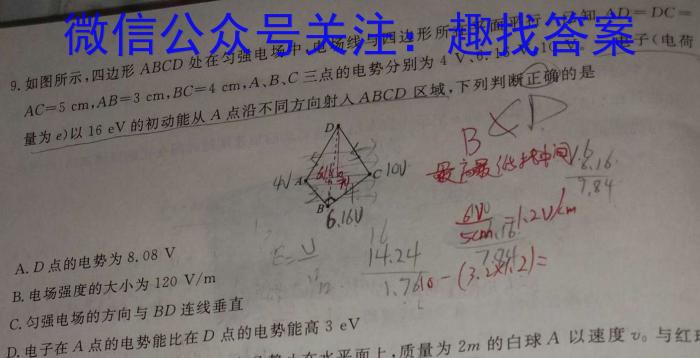 微信公众号关注：趣找答案
9.如图所示,四边形 ABCD 处在匀强电场中,电场线与四边形所在平面平行,已知 AD=DC=
AC=5 cm,AB=3 cm,BC=4 cm,A、B、C 三点的电势分别为 4 V、6.16 V、10 V 电子(电荷
量为 e)以 16 eV 的初动能从 A 点沿不同方向射入 ABCD 区域,下列判断正确的是
B D
D
4V A C 10V
B
6.16V
6.16
7.84
6V
5cm =1.2V/cm
7.84
16
14.24
1.76
10-(3.2×1.2)=
E=U
A.D 点的电势为 8.08 V
B.电场强度的大小为 120 V/m
C.匀强电场的方向与 BD 连线垂直
D.电子在 A 点的电势能比在 D 点的电势能高 3 eV
止在水平面上,质量为 2m 的白球 A 以速度 v₀ 与红